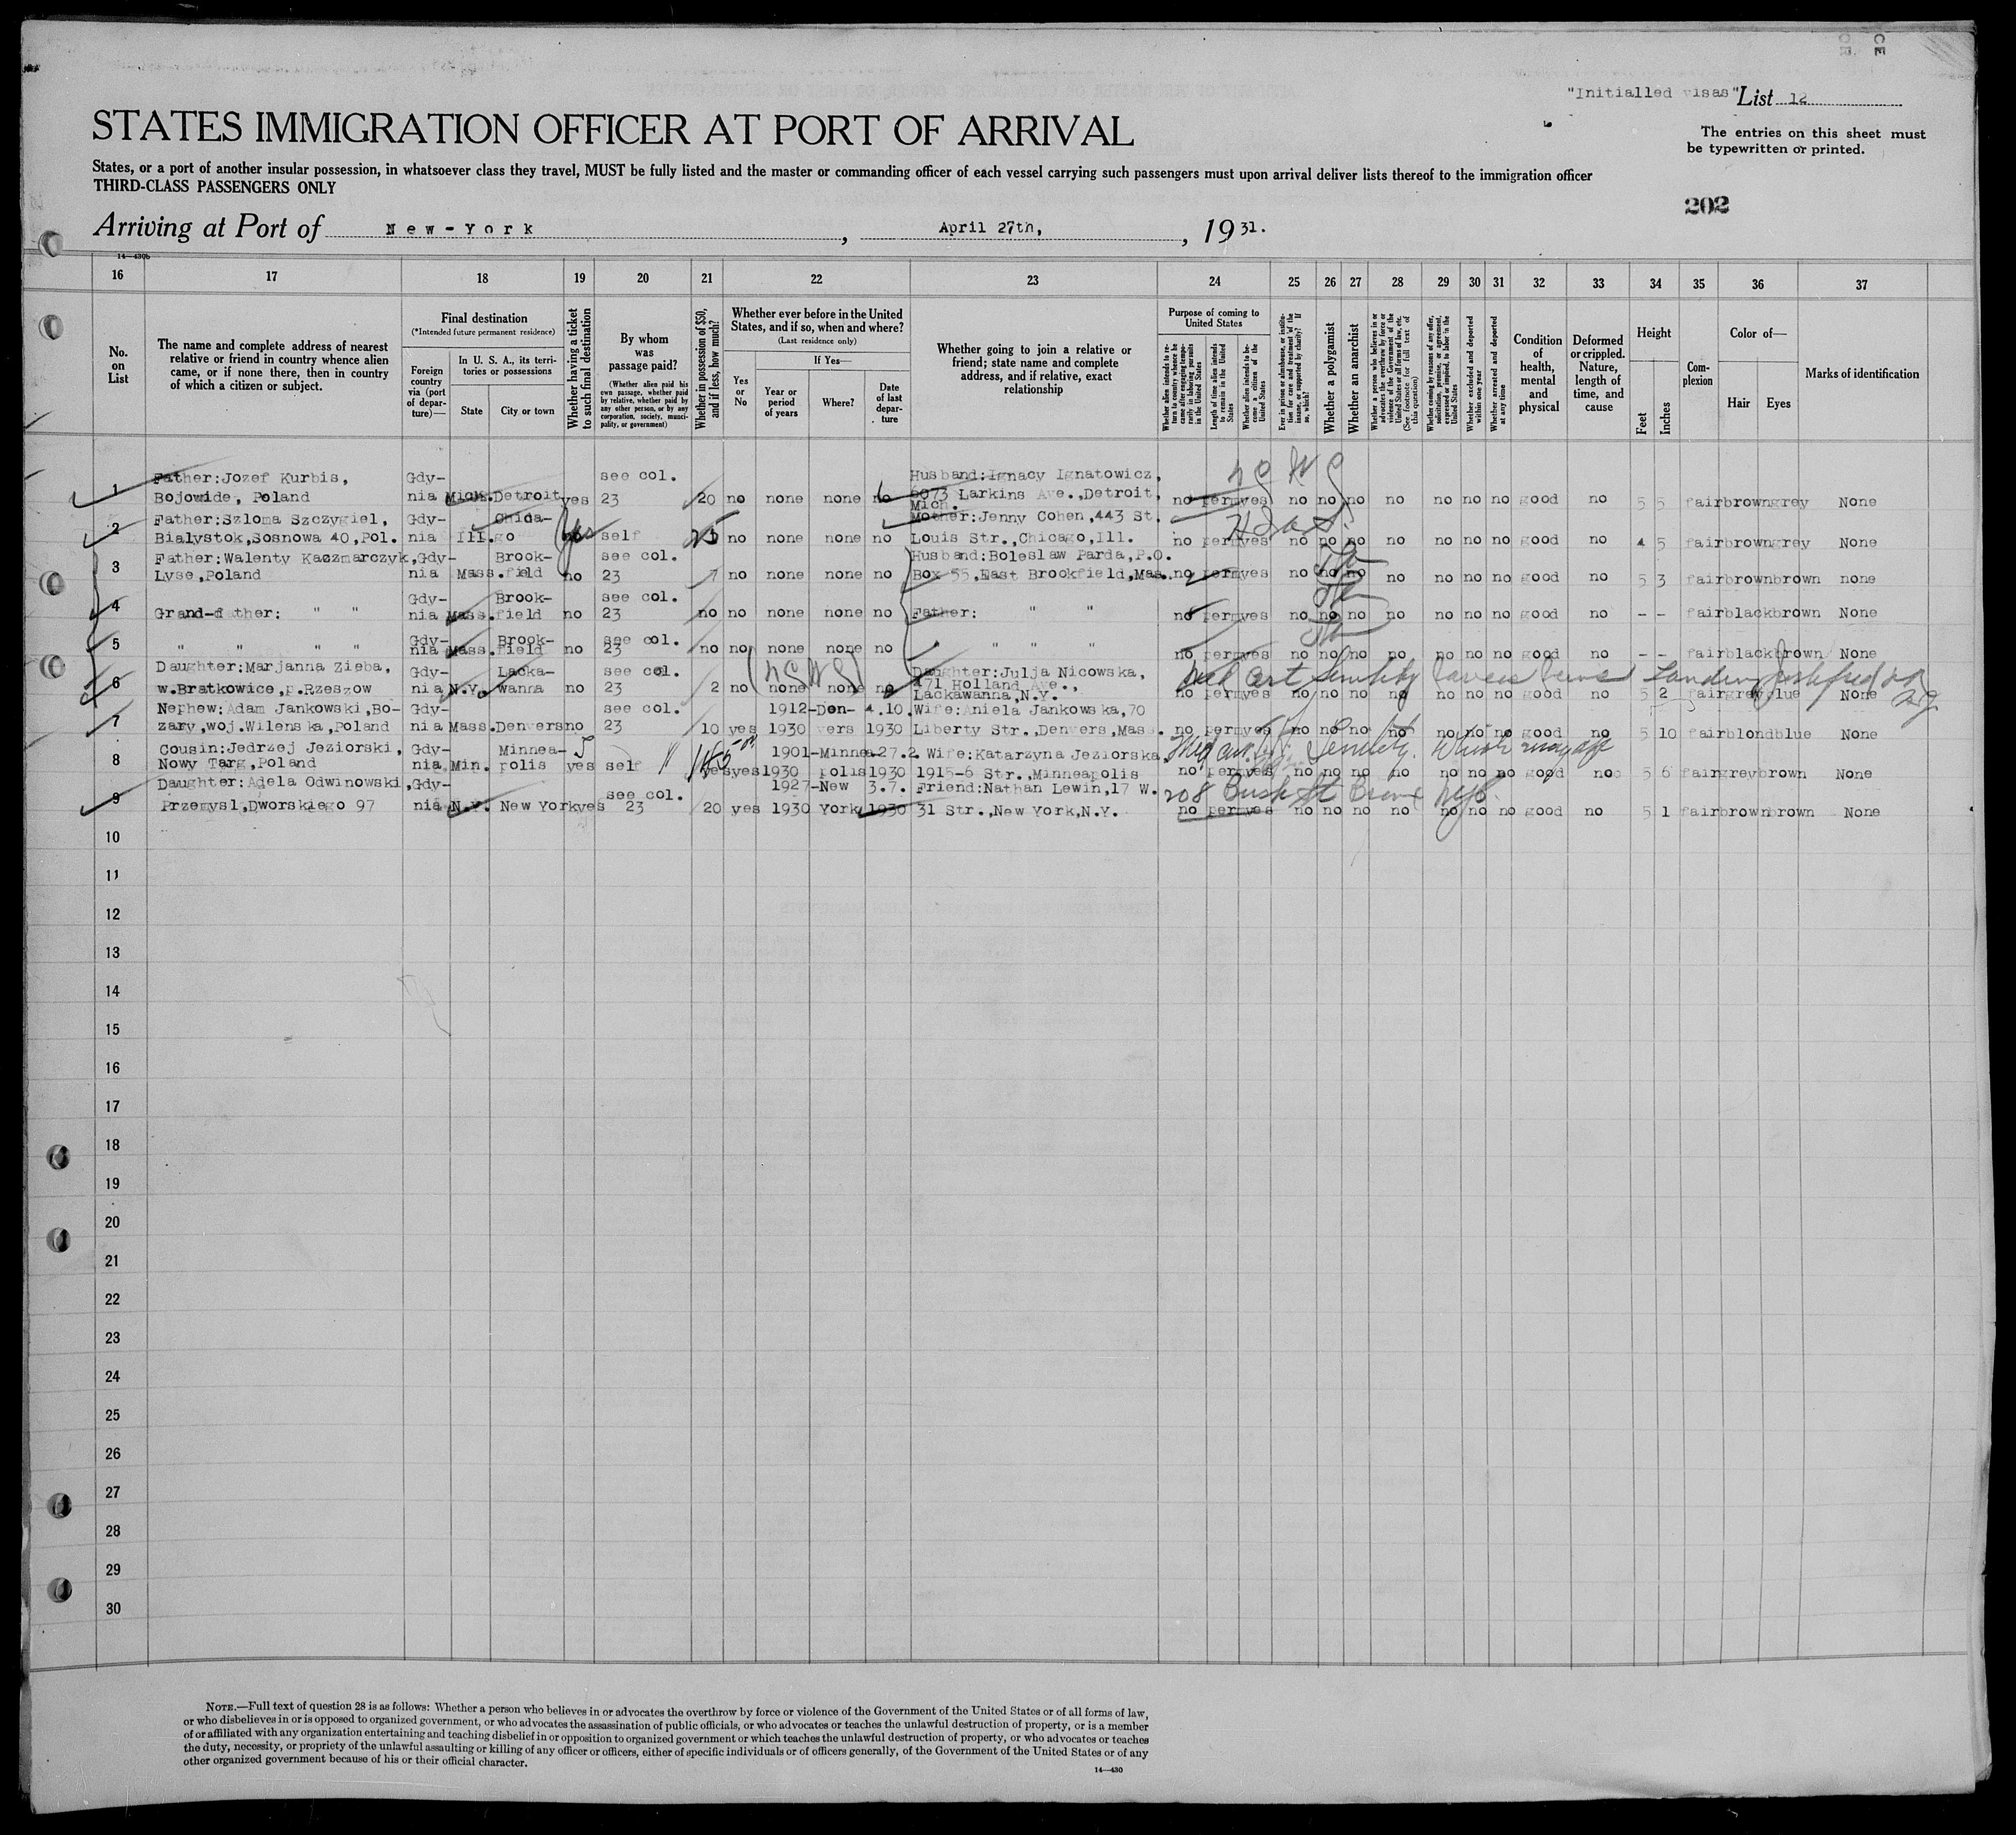 "Initialled visas" List 12
STATES IMMIGRATION OFFICER AT PORT OF ARRIVAL
The entries on this sheet must
be typewritten or printed.
States, or a port of another insular possession, in whatsoever class they travel, MUST be fully listed and the master or commanding officer of each vessel carrying such passengers must upon arrival deliver lists thereof to the immigration officer
THIRD-CLASS PASSENGERS ONLY
202
Arriving at Port of New-York, April 27th, , 19 31.
14—430b
16 17 18 19 20 21 22 23 24 25 26 27 28 29 30 31 32 33 34 35 36 37
No. on List
The name and complete address of nearest relative or friend in country whence alien came, or if none there, then in country of which a citizen or subject.
Final destination
(*Intended future permanent residence)
Foreign country via (port of departure)—
In U. S. A., its territories or possessions
State
City or town
Whether having a ticket to such final destination
By whom was passage paid?
(Whether alien paid his own passage, whether paid by relative, whether paid by any other person, or by any corporation, society, municipality, or government)
Whether in possession of $50, and if less, how much?
Whether ever before in the United States, and if so, when and where?
(Last residence only)
Yes or No
If Yes—
Year or period of years
Where?
Date of last departure
Whether going to join a relative or friend; state name and complete address, and if relative, exact relationship
Purpose of coming to United States
Whether alien intends to return to country whence he came after engaging temporarily in laboring pursuits in the United States
Length of time alien intends to remain in the United States
Whether alien intends to become a citizen of the United States
Ever in prison or almshouse, or institution for care and treatment of the insane, or supported by charity? If so, which?
Whether a polygamist
Whether an anarchist
Whether a person who believes in or advocates the overthrow by force or violence of the Government of the United States or all forms of law, etc. (See footnote for full text of this question)
Whether coming by reasons of any offer, solicitation, promise, or agreement, expressed or implied, to labor in the United States
Whether excluded and deported within one year
Whether arrested and deported at any time
Condition of health, mental and physical
Deformed or crippled. Nature, length of time, and cause
Height
Feet
Inches
Complexion
Color of—
Hair
Eyes
Marks of identification
Father:Jozef Kurbis, Gdy- see col. Husband:Ignacy Ignatowicz,
1 Bojowide, Poland nia Mich. Detroit yes 23 20 no none none no 6073 Larkins Ave.,Detroit, no perm yes no no no no no no no good no 5 5 fair brown grey None
Mich.
Father:Szloma Szczygiel, Gdy- Chica- Mother:Jenny Cohen,443 St.
2 Bialystok,Sosnowa 40,Pol. nia Ill. go yes self 25 no none none no Louis Str.,Chicago,Ill. no perm yes no no no no no no no good no 4 5 fair brown grey None
Father:Walenty Kaczmarczyk, Gdy- Brook- see col. Husband:Boleslaw Parda,P.O.
3 Lyse,Poland nia Mass. field no 23 7 no none none no Box 55,East Brookfield,Mas. no perm yes no no no no no no no good no 5 3 fair brown brown none
Gdy- Brook- see col.
4 Grand-father: " " nia Mass. field no 23 no no none none no Father: " " no perm yes no no no no no no no good no - - fair black brown None
Gdy- Brook- see col.
5 " " " " nia Mass. field no 23 no no none none no " " " no perm yes no no no no no no no good no - - fair black brown None
Daughter:Marjanna Zieba, Gdy- Lacka- see col. Daughter:Julja Nicowska,
6 w.Bratkowice,p.Rzeszow nia N.Y. wanna no 23 2 no none none no 171 Holland Ave., no perm yes no no no no no no no good no 5 2 fair grey blue None
Lackawanna,N.Y.
Nephew:Adam Jankowski,Bo- Gdy- see col. 1912- Den- 4.10. Wife:Aniela Jankowska,70
7 zary,woj.Wilenska,Poland nia Mass. Denvers no 23 10 yes 1930 vers 1930 Liberty Str.,Denvers,Mass. no perm yes no no no no no no no good no 5 10 fair blond blue None
Cousin:Jedrzej Jeziorski, Gdy- Minnea- 1901- Minnea 27.2. Wife:Katarzyna Jeziorska,
8 Nowy Targ,Poland nia Min. polis yes self yes yes 1930 polis 1930 1915-6 Str.,Minneapolis no perm yes no no no no no no no good no 5 6 fair grey brown None
Daughter:Adela Odwinowski, Gdy- see col. 1927- New 3.7. Friend:Nathan Lewin,17 W.
208 Bush St Bronx
9 Przemysl,Dworskiego 97 nia N.Y. New York yes 23 20 yes 1930 York 1930 31 Str.,New York,N.Y. no perm yes no no no no no no no good no 5 1 fair brown brown None
10
11
12
13
14
15
16
17
18
19
20
21
22
23
24
25
26
27
28
29
30
NOTE.—Full text of question 28 is as follows: Whether a person who believes in or advocates the overthrow by force or violence of the Government of the United States or of all forms of law,
or who disbelieves in or is opposed to organized government, or who advocates the assassination of public officials, or who advocates or teaches the unlawful destruction of property, or is a member
of or affiliated with any organization entertaining and teaching disbelief in or opposition to organized government or which teaches the unlawful destruction of property, or who advocates or teaches
the duty, necessity, or propriety of the unlawful assaulting or killing of any officer or officers, either of specific individuals or of officers generally, of the Government of the United States or of any
other organized government because of his or their official character.
14—430